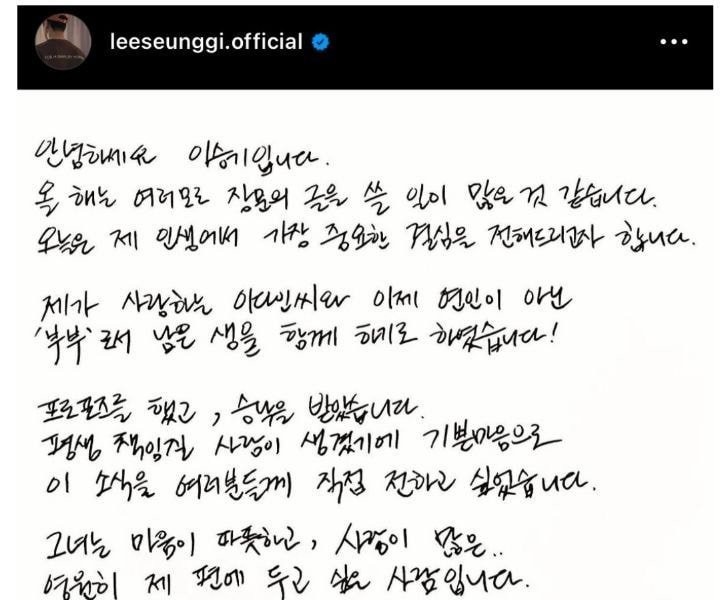 leeseunggi.official
안녕하세요 이승기입니다.
올 해는 여러모로 장문의 글을 쓸 일이 많은 것 같습니다.
오늘은 제 인생에서 가장 중요한 결심을 전해드리고자 합니다.
제가 사랑하는 이다인씨와 이제 연인이 아닌
'부부'로서 남은 생을 함께 하기로 하였습니다!
프로포즈를 했고, 승낙을 받았습니다.
평생 책임질 사람이 생겼기에 기쁜마음으로
이 소식을 여러분들께 직접 전하고 싶었습니다.
그녀는 마음이 따뜻하고, 사랑이 많은..
영원히 제 편에 두고 싶은 사람입니다.